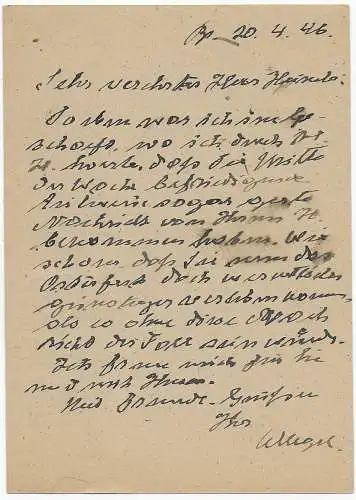 20. 4. 46.
Sehr verehrter Herr
Soeben war ich im Ge-
schäft, wo ich durch
hörte, daß Sie Mitte
der Woche befriedigende
sogar gute
Nachricht von Ihrem
bekommen haben. Wie
schön, daß Sie nun das
Osterfest doch
verleben konn-
als es ohne diese
nicht der Fall sein würde.
Ich freue mich für Sie
und mit Ihnen.
Mit Freundl. Grüßen
Ihr